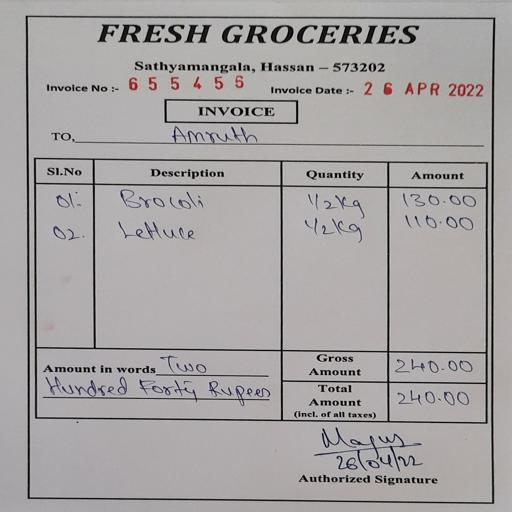 FRESH GROCERIES
Sathyamangala, Hassan – 573202
Invoice No :- 655456 Invoice Date :- 26 APR 2022
INVOICE
TO, Amruth
Sl.No Description Quantity Amount
01. Brocoli 1/2 Kg 130.00
02. Lettuce 1/2 Kg 110.00
Amount in words Two
Hundred Forty Rupees
Gross
Amount 240.00
Total
Amount
(incl. of all taxes) 240.00
26/04/22
Authorized Signature